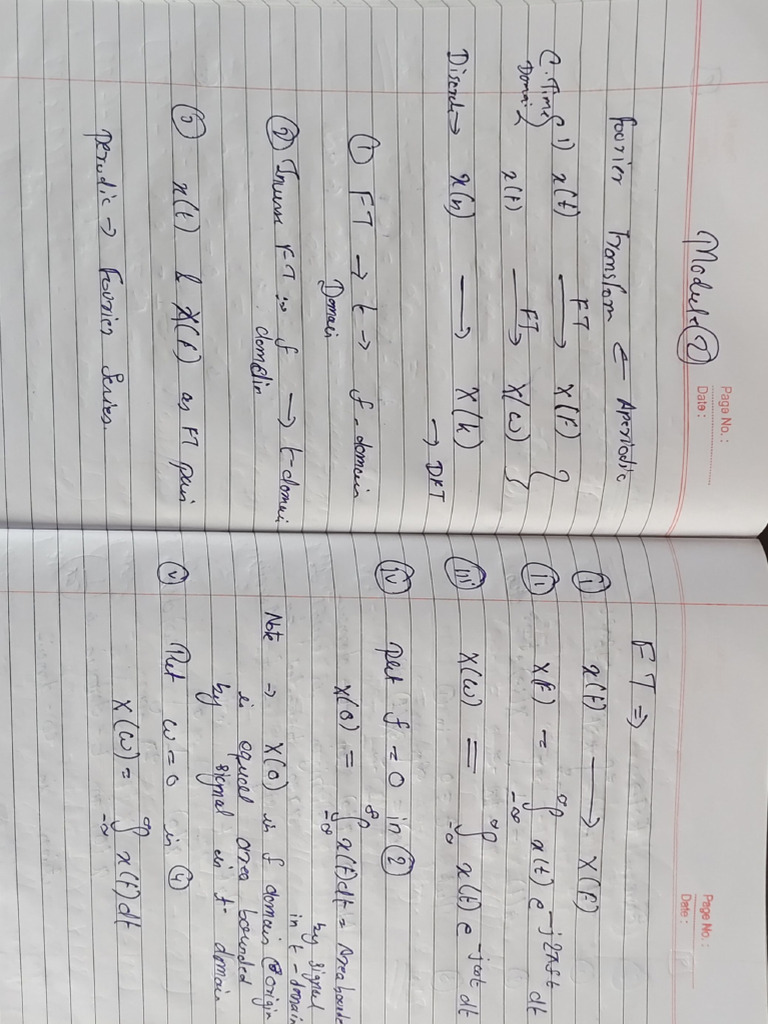 Page No.:
Date:
Module (7)
Fourier Transform ← Aperiodic
C. Time Domain { 1) x(t) —FT→ X(f) }
x(t) —FT→ X(ω)
Discrete → x(n) ⟶ X(k)
→ DFT
① FT → t → f-domain
Domain
② Inverse FT :- f → t-domai
domain
③ x(t) & X(f) as FT pair
periodic → Fourier Series.
Page No.:
Date:
FT ⇒
(i) x(t) ⟶ X(f)
(ii) X(f) = ∫_{-∞}^{∞} x(t) e^{-j2πft} dt
(iii) X(ω) = ∫_{-∞}^{∞} x(t) e^{-jωt} dt
(iv) put f = 0 in ②
X(0) = ∫_{-∞}^{∞} x(t) dt = Area bounde
by signal
in t-domain
Note → X(0) in f domain @ origin
is equal area bounded
by signal in t-domain
(v) Put ω = 0 in ④
X(ω) = ∫_{-∞}^{∞} x(t) dt